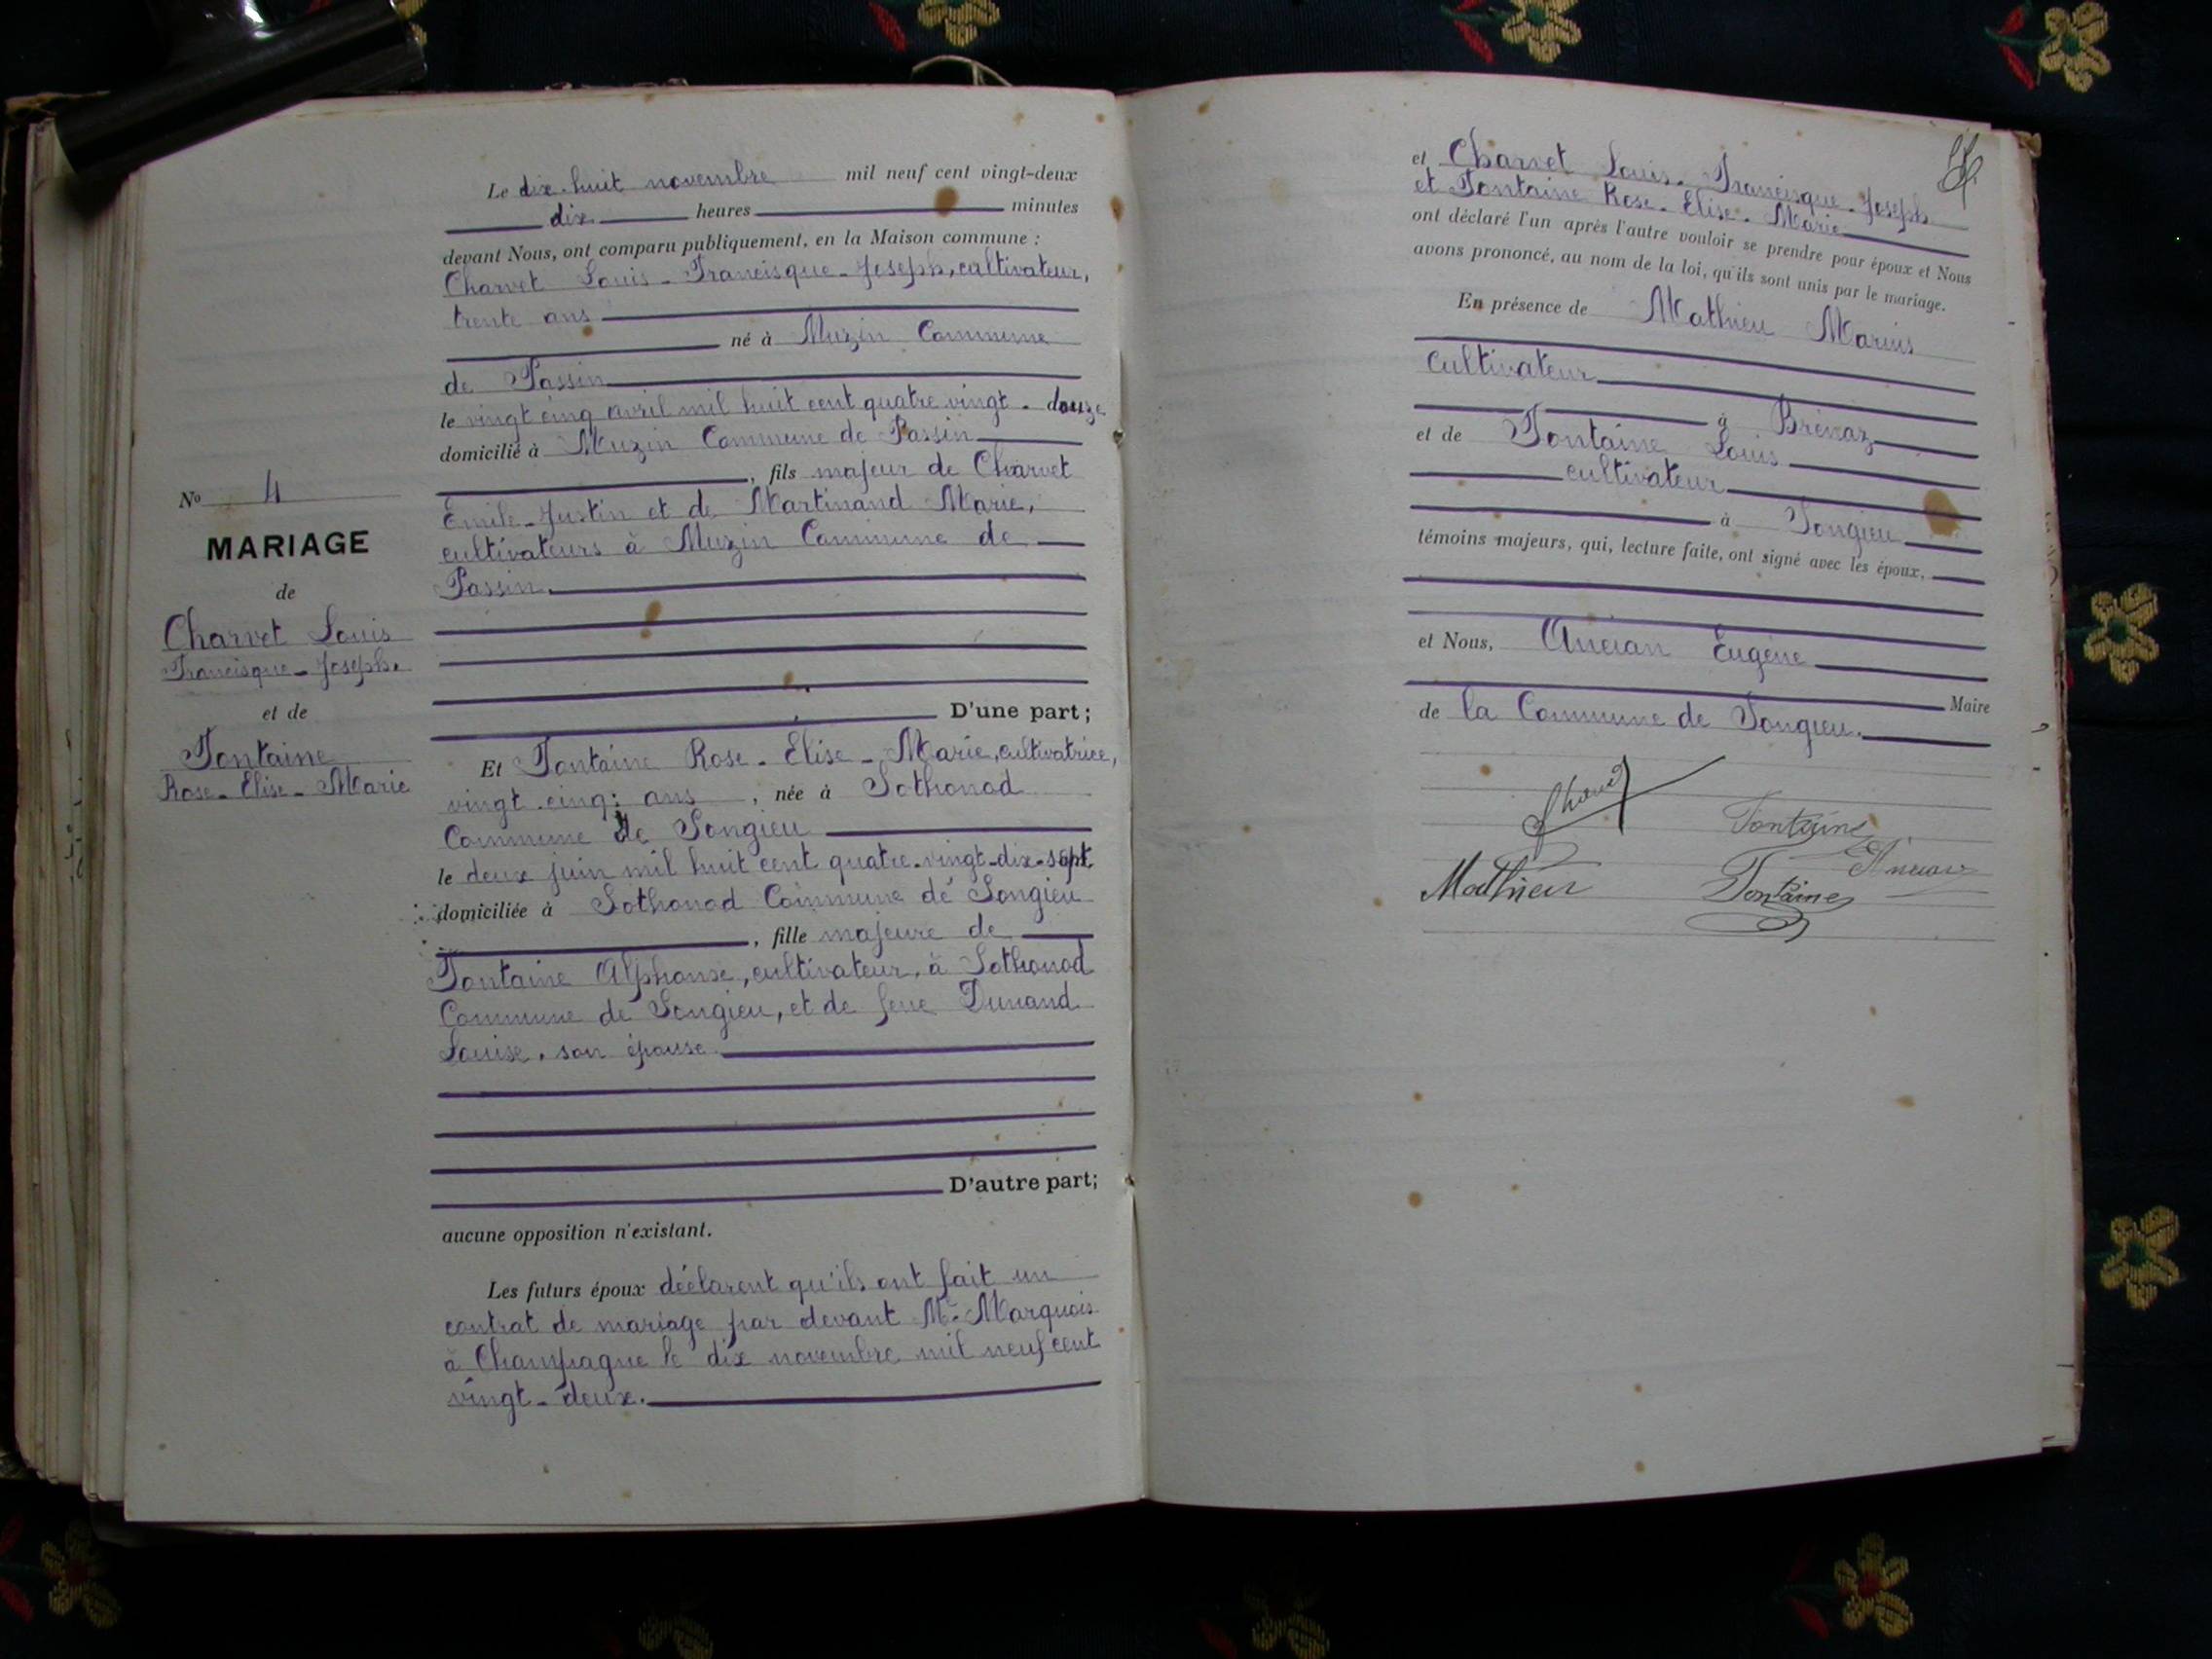 N° 4
MARIAGE
de
Charvet Louis
Francisque-Joseph.
et de
Fontaine
Rose-Elise-Marie
Le dix-huit novembre mil neuf cent vingt-deux
dix heures minutes
devant Nous, ont comparu publiquement, en la Maison commune :
Charvet Louis-Francisque-Joseph, cultivateur,
trente ans
né à Muzin Commune
de Passin
le vingt cinq avril mil huit cent quatre vingt-douze
domicilié à Muzin Commune de Passin
, fils majeur de Charvet
Emile-Justin et de Martinand Marie,
cultivateurs à Muzin Commune de
Passin.
D'une part ;
Et Fontaine Rose-Elise-Marie, cultivatrice,
vingt-cinq ans , née à Sothonod
Commune de Songieu
le deux juin mil huit cent quatre-vingt-dix-sept
domiciliée à Sothonod Commune de Songieu
, fille majeure de
Fontaine Alphonse, cultivateur, à Sothonod
Commune de Songieu, et de feue Dunand
Louise, son épouse.
D'autre part;
aucune opposition n'existant.
Les futurs époux déclarent qu'ils ont fait un
contrat de mariage par devant Me Marquois
à Champagne le dix novembre mil neuf cent
vingt-deux.
et Charvet Louis-Francisque-Joseph
et Fontaine Rose-Elise-Marie
ont déclaré l'un après l'autre vouloir se prendre pour époux et Nous
avons prononcé, au nom de la loi, qu'ils sont unis par le mariage.
En présence de Mathieu Marius
cultivateur
à Brénaz
et de Fontaine Louis
cultivateur
à Songieu
témoins majeurs, qui, lecture faite, ont signé avec les époux,
et Nous, Ancian Eugène
Maire
de la Commune de Songieu.
Charvet
Fontaine
Ancian
Mathieu
Fontaine